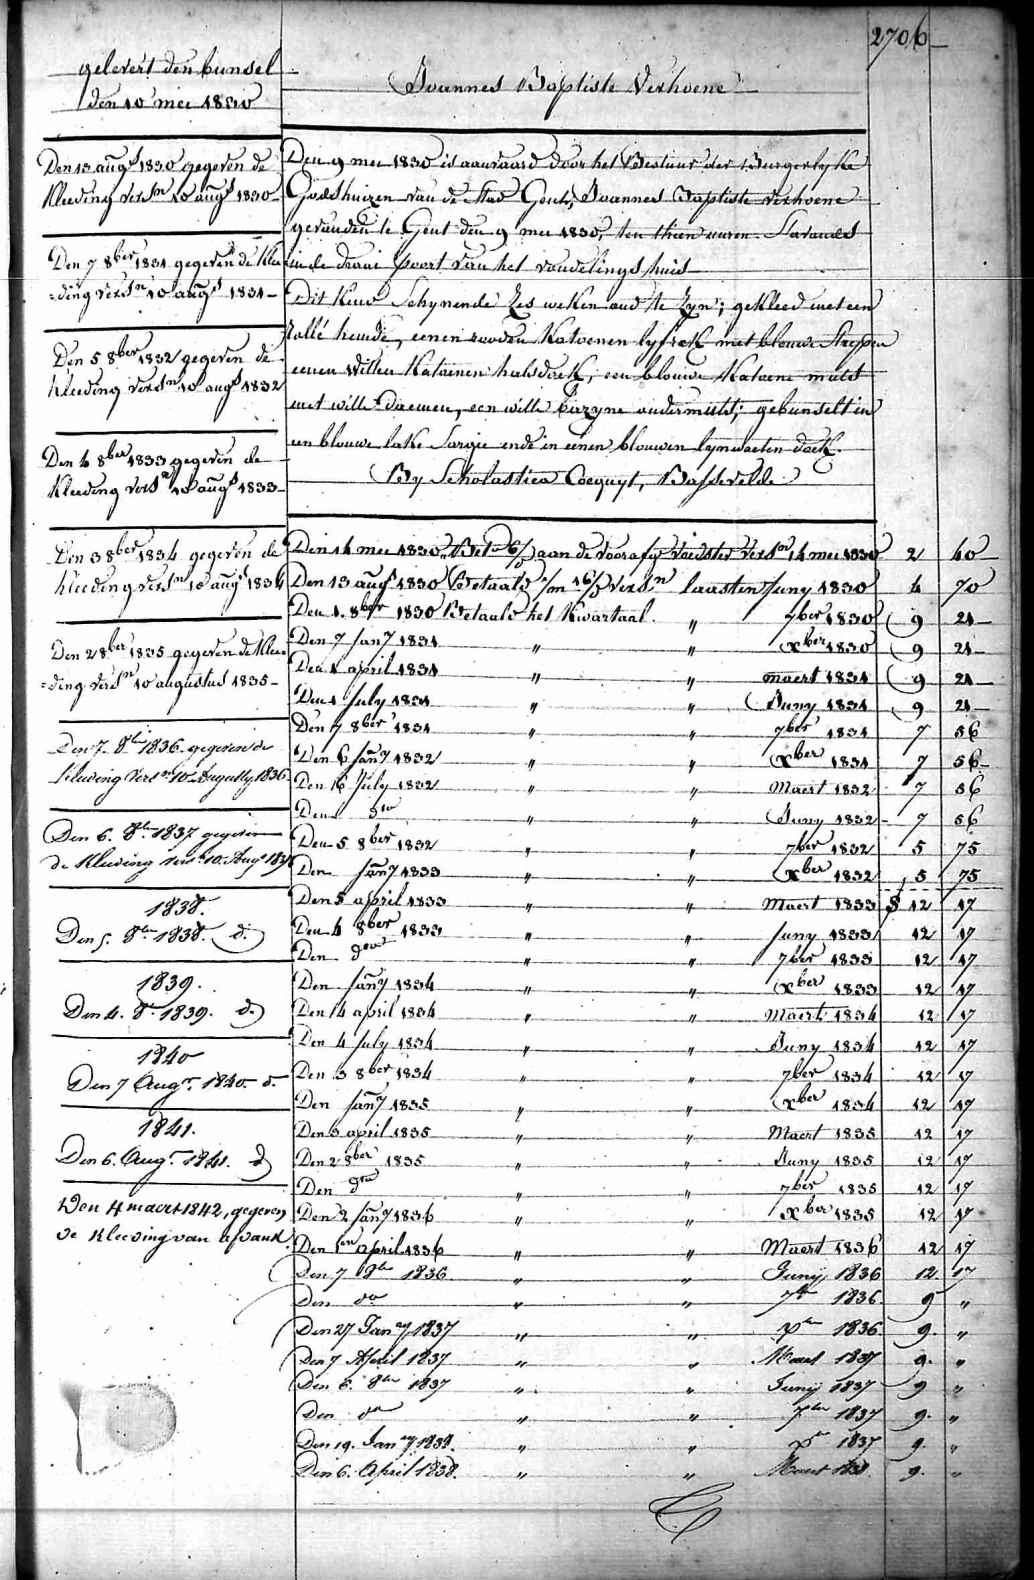 2706
gelevert den bunsel
den 10 mei 1830
Joannes Baptiste Verhoene
Den 13 augt 1830 gegeven de
Kleeding versn 10 augt 1830
Den 7 8ber 1831 gegeven de Klee
=ding versn 10 augt 1831
Den 5 8ber 1832 gegeven de
Kleeding versn 10 augt 1832
Den 4 8ber 1833 gegeven de
Kleeding versn 10 augt 1833
Den 3 8ber 1834 gegeven de
Kleeding versn 10 augt 1834
Den 2 8ber 1835 gegeven de Klee
=ding versn 10 augustus 1835
Den 7. 8br 1836 gegeven de
Kleeding versn 10 Augusty 1836
Den 6. 8br 1837 gegeven
de Kleeding versn 10. Augt 1837
1838.
Den 5. 8br 1838. d.
1839.
Den 4. 8r 1839. d.
1840
Den 7 Augt. 1840 d.
1841.
Den 6. Augt. 1841. d
Den 4 maert 1842, gegeven
de Kleeding van afvaard.
Den 9 mei 1830 is aanvaard door het Bestuur der Burgerlyke
Godshuizen van de Stad Gent, Joannes Baptiste Verhoene
gevonden te Gent den 9 mei 1830, ten thien uuren Savonds
in de draai poort van het vondelingshuis
Dit Kind Schynende Zes weken oud te Zyn; gekleed met een
hemde, eenen rooden Katoenen lyfrok met blauwe Strepen
eenen Witten Katoenen halsdoek, een blauwe Katoene muts
met witte bloemen, een witte bazyne ondermuts; gebunselt in
een blauwe lake Sargie ende in eenen blauwen lynwaeten doek.
By Scholastica Coequyt, Bassevelde
Den 14 mei 1830 Betd 6/ aan de voorafge Voedster versn 14 mei 1830 2 40
Den 13 augt 1830 Betaald versn laasten Juny 1830 4 70
Den 1. 8ber 1830 Betaald het Kwartaal " 7ber 1830 9 21
Den 7 Jany 1831 " " Xber 1830 9 21
Den 1 april 1831 " " maert 1831 9 21
Den 1 July 1831 " " Juny 1831 9 21
Den 7 8ber 1831 " " 7ber 1831 7 56
Den 6 Jany 1832 " " Xber 1831 7 56
Den 16 July 1832 " " Maert 1832 7 56
Den do " " Juny 1832 7 56
Den 5 8ber 1832 " " 7ber 1832 5 75
Den Jany 1833 " " Xber 1832 5 75
Den 5 april 1833 " " Maert 1833 12 17
Den 4 8ber 1833 " " Juny 1833 12 17
Den do " " 7ber 1833 12 17
Den Jany 1834 " " Xber 1833 12 17
Den 14 april 1834 " " Maert 1834 12 17
Den 4 July 1834 " " Juny 1834 12 17
Den 3 8ber 1834 " " 7ber 1834 12 17
Den Jany 1835 " " Xber 1834 12 17
Den 3 april 1835 " " Maert 1835 12 17
Den 2 8ber 1835 " " Juny 1835 12 17
Den do " " 7ber 1835 12 17
Den 2 Jany 1836 " " Xber 1835 12 17
Den 1en april 1836 " " Maert 1836 12 17
Den 7 8br 1836 " " Junij 1836 12 17
Den do " " 7br 1836 9 "
Den 27 Jany 1837 " " Xr 1836 9. "
Den 7 April 1837 " " Maart 1837 9. "
Den 6. 8br 1837 " " Junij 1837 9 "
Den do " " 7ber 1837 9. "
Den 19. Jany 1838. " " Xr 1837 9. "
Den 6. April 1838. " " Maart 1838. 9. "